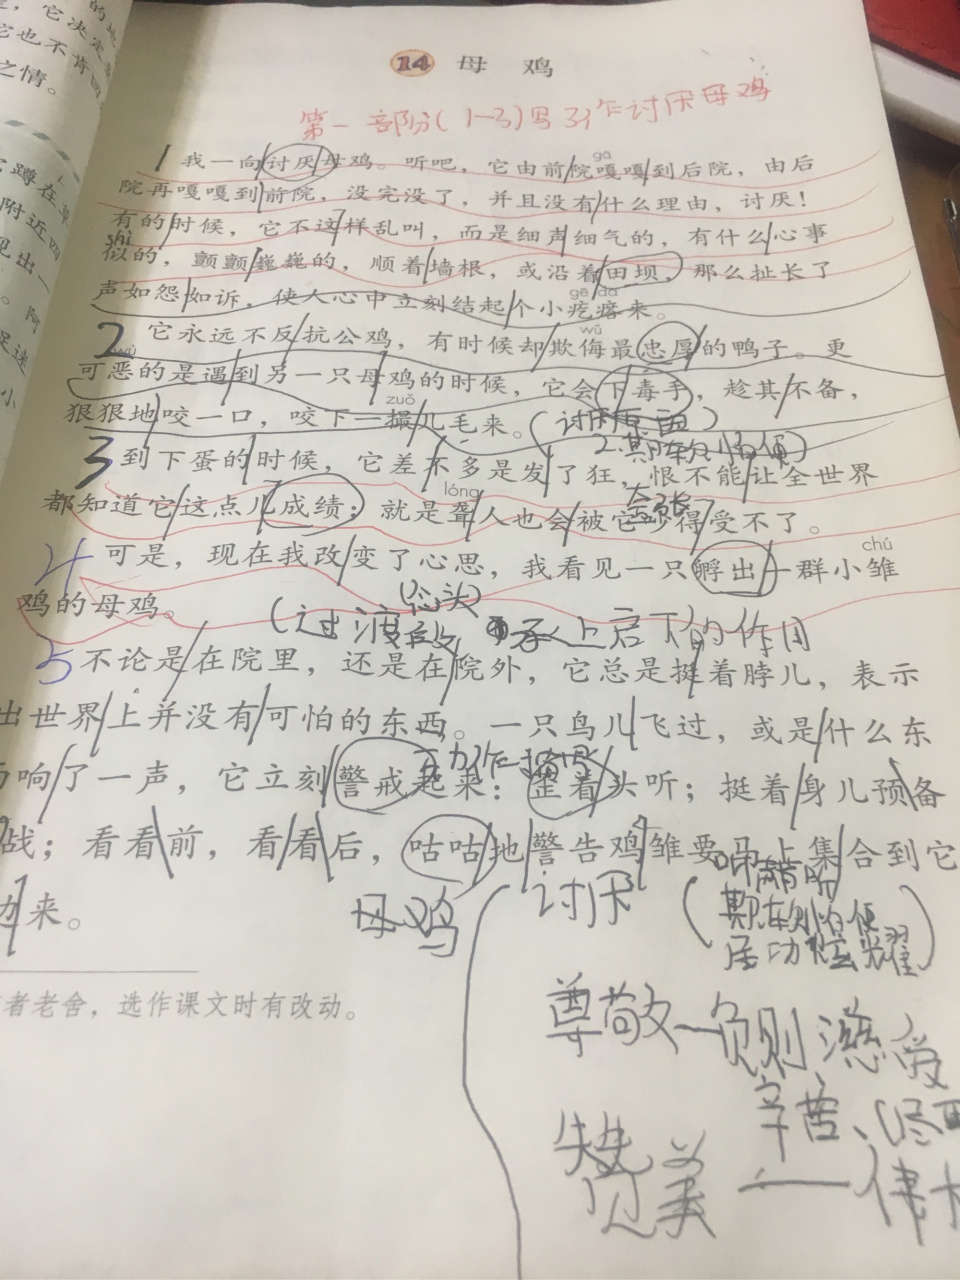 的地
，它决定
它也不肯回
之情。
蹲在
附近四
见出一
。阿
足迷
小
14 母鸡
第一部分(1-3)写了讨厌母鸡
1 我一向讨厌母鸡。听吧，它由前院嘎嘎到后院，由后
gā
院再嘎嘎到前院，没完没了，并且没有什么理由，讨厌！
有的时候，它不这样乱叫，而是细声细气的，有什么心事
shì
似的，颤颤巍巍的，顺着墙根，或沿着田坝，那么扯长了
声如怨如诉，使人心中立刻结起个小疙瘩来。
gē da
2 它永远不反抗公鸡，有时候却欺侮最忠厚的鸭子。更
wǔ
wù
可恶的是遇到另一只母鸡的时候，它会下毒手，趁其不备，
zuǒ
狠狠地咬一口，咬下一撮儿毛来。(讨厌原因)
2.欺软怕硬)
3 到下蛋的时候，它差不多是发了狂，恨不能让全世界
夸张
lóng
都知道它这点儿成绩；就是聋人也会被它吵得受不了。
4 可是，现在我改变了心思，我看见一只孵出一群小雏
chú
鸡的母鸡。
(过渡段 承上启下的作用
5 不论是在院里，还是在院外，它总是挺着脖儿，表示
出世界上并没有可怕的东西。一只鸟儿飞过，或是什么东
西响了一声，它立刻警戒起来：歪着头听；挺着身儿预备
动作描写
战；看看前，看看后，咕咕地警告鸡雏要马上集合到它
边来。
母鸡
讨厌
居功炫耀
尊敬—负则 慈爱
辛苦、
赞美——伟
者老舍，选作课文时有改动。